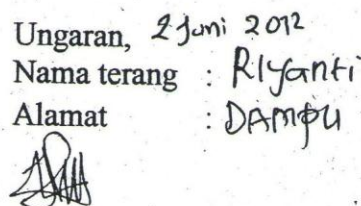 Ungaran, 2 Juni 2012
Nama terang : Riyanti
Alamat : DAMPU